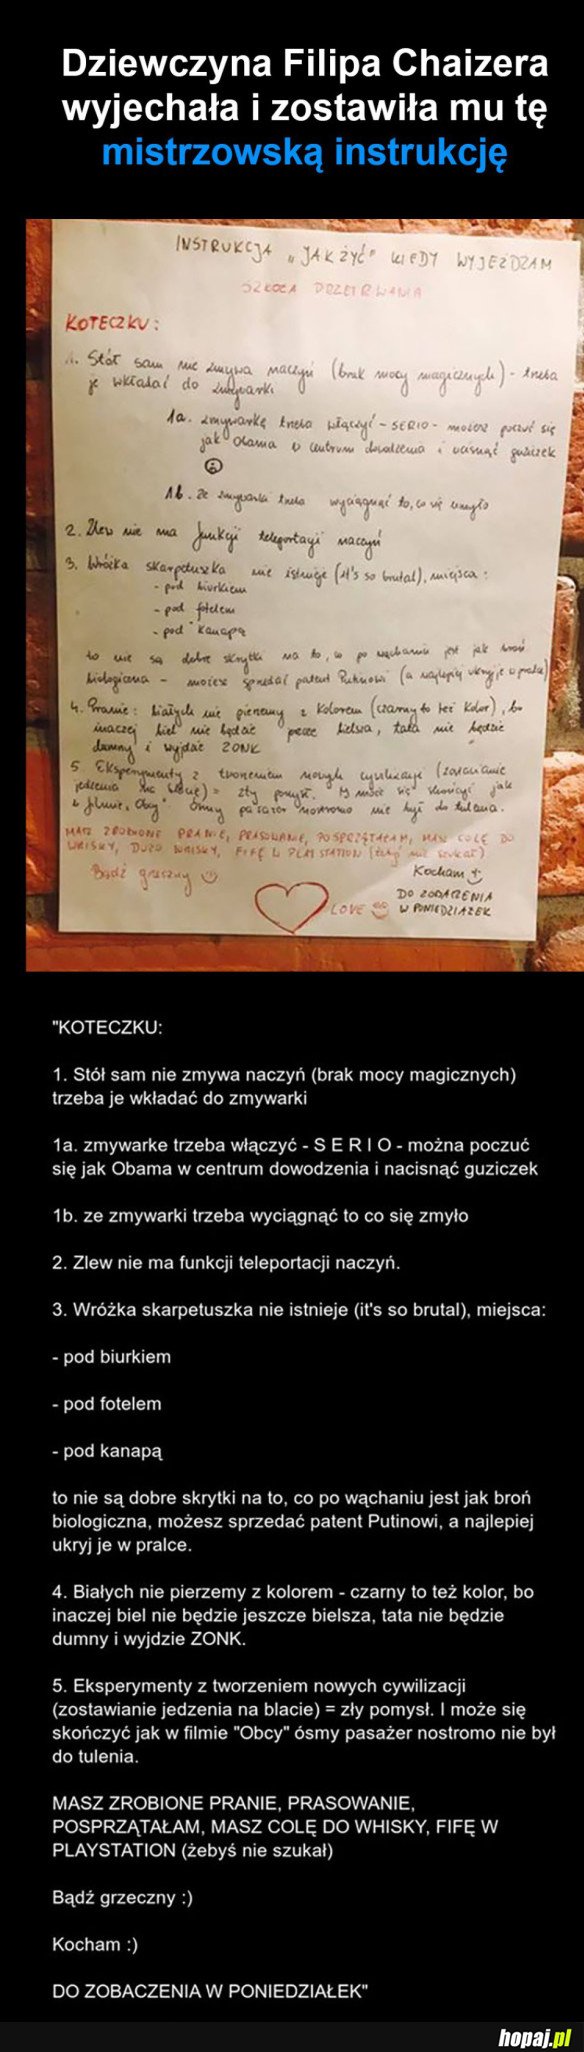 Dziewczyna Filipa Chaizera
wyjechała i zostawiła mu tę
mistrzowską instrukcję
INSTRUKCJA "JAK ŻYĆ" KIEDY WYJEŻDŻAM
SZKOŁA PRZETRWANIA
KOTECZKU:
1. Stół sam nie zmywa naczyń (brak mocy magicznych) - trzeba
je wkładać do zmywarki
1a. zmywarkę trzeba włączyć - SERIO - możesz poczuć się
jak Obama w centrum dowodzenia i wcisnąć guziczek
1b. ze zmywarki trzeba wyciągnąć to, co się umyło
2. Zlew nie ma funkcji teleportacji naczyń
3. Wróżka skarpetuszka nie istnieje (it's so brutal), miejsca:
- pod biurkiem
- pod fotelem
- pod kanapą
to nie są dobre skrytki na to, co po wąchaniu jest jak broń
biologiczna - możesz sprzedać patent Putinowi (a najlepiej ukryj je w pralce)
4. Pranie: białych nie pierzemy z kolorem (czarny to też kolor), bo
inaczej biel nie będzie bielsza, tata nie będzie
dumny i wyjdzie ZONK
5. Eksperymenty z tworzeniem nowych cywilizacji (zostawianie
jedzenia na blacie) = zły pomysł. I może się skończyć jak
w filmie "Obcy" ósmy pasażer nostromo nie był do tulenia.
MASZ ZROBIONE PRANIE, PRASOWANIE, POSPRZĄTAŁAM, MASZ COLĘ DO
WHISKY, DUŻO WHISKY, FIFĘ W PLAYSTATION (żebyś nie szukał)
Bądź grzeczny
Kocham
DO ZOBACZENIA
LOVE W PONIEDZIAŁEK
"KOTECZKU:
1. Stół sam nie zmywa naczyń (brak mocy magicznych)
trzeba je wkładać do zmywarki
1a. zmywarke trzeba włączyć - S E R I O - można poczuć
się jak Obama w centrum dowodzenia i nacisnąć guziczek
1b. ze zmywarki trzeba wyciągnąć to co się zmyło
2. Zlew nie ma funkcji teleportacji naczyń.
3. Wróżka skarpetuszka nie istnieje (it's so brutal), miejsca:
- pod biurkiem
- pod fotelem
- pod kanapą
to nie są dobre skrytki na to, co po wąchaniu jest jak broń
biologiczna, możesz sprzedać patent Putinowi, a najlepiej
ukryj je w pralce.
4. Białych nie pierzemy z kolorem - czarny to też kolor, bo
inaczej biel nie będzie jeszcze bielsza, tata nie będzie
dumny i wyjdzie ZONK.
5. Eksperymenty z tworzeniem nowych cywilizacji
(zostawianie jedzenia na blacie) = zły pomysł. I może się
skończyć jak w filmie "Obcy" ósmy pasażer nostromo nie był
do tulenia.
MASZ ZROBIONE PRANIE, PRASOWANIE,
POSPRZĄTAŁAM, MASZ COLĘ DO WHISKY, FIFĘ W
PLAYSTATION (żebyś nie szukał)
Bądź grzeczny :)
Kocham :)
DO ZOBACZENIA W PONIEDZIAŁEK"
hopaj.pl